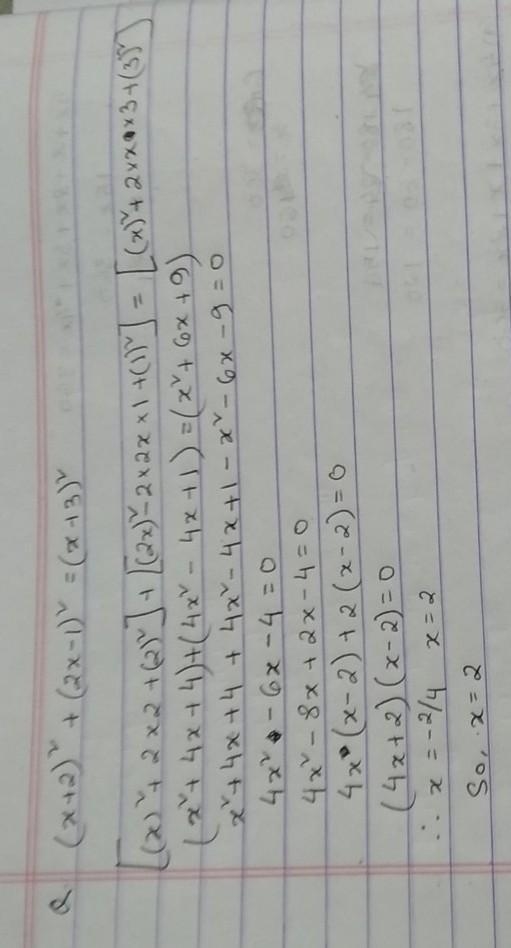 Q (x+2)² + (2x-1)² = (x+3)²
[(x)² + 2×2 + (2)²] + [(2x)² - 2×2x×1 + (1)²] = [(x)² + 2×x×3 + (3)²]
(x² + 4x + 4) + (4x² - 4x + 1) = (x² + 6x + 9)
x² + 4x + 4 + 4x² - 4x + 1 - x² - 6x - 9 = 0
4x² - 6x - 4 = 0
4x² - 8x + 2x - 4 = 0
4x (x-2) + 2 (x-2) = 0
(4x+2) (x-2) = 0
∴ x = -2/4 x = 2
So, x = 2